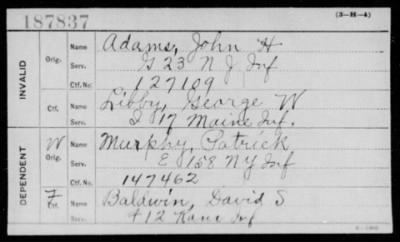 187837
(3-H-4)
INVALID
Orig.
Name Adams, John H
Serv. G 23 N J Inf
Ctf. No. 127109
Ctf.
Name Libby, George W
Serv. I 17 Maine Inf.
DEPENDENT
W
Orig.
Name Murphy, Patrick
Serv. E 158 N Y Inf
Ctf. No. 147462
F
Ctf.
Name Baldwin, David S
Serv. 12 Kans Inf